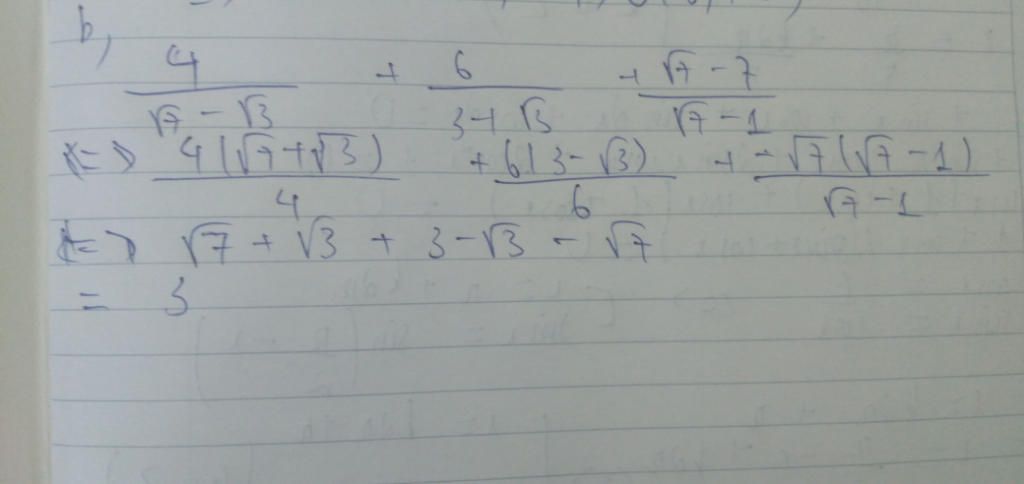 b,
4/(√7 - √3) + 6/(3+√3) + (√7 - 7)/(√7 - 1)
<=> 4(√7+√3)/4 + 6(3-√3)/6 + -√7(√7-1)/(√7-1)
<=> √7 + √3 + 3-√3 - √7
= 3